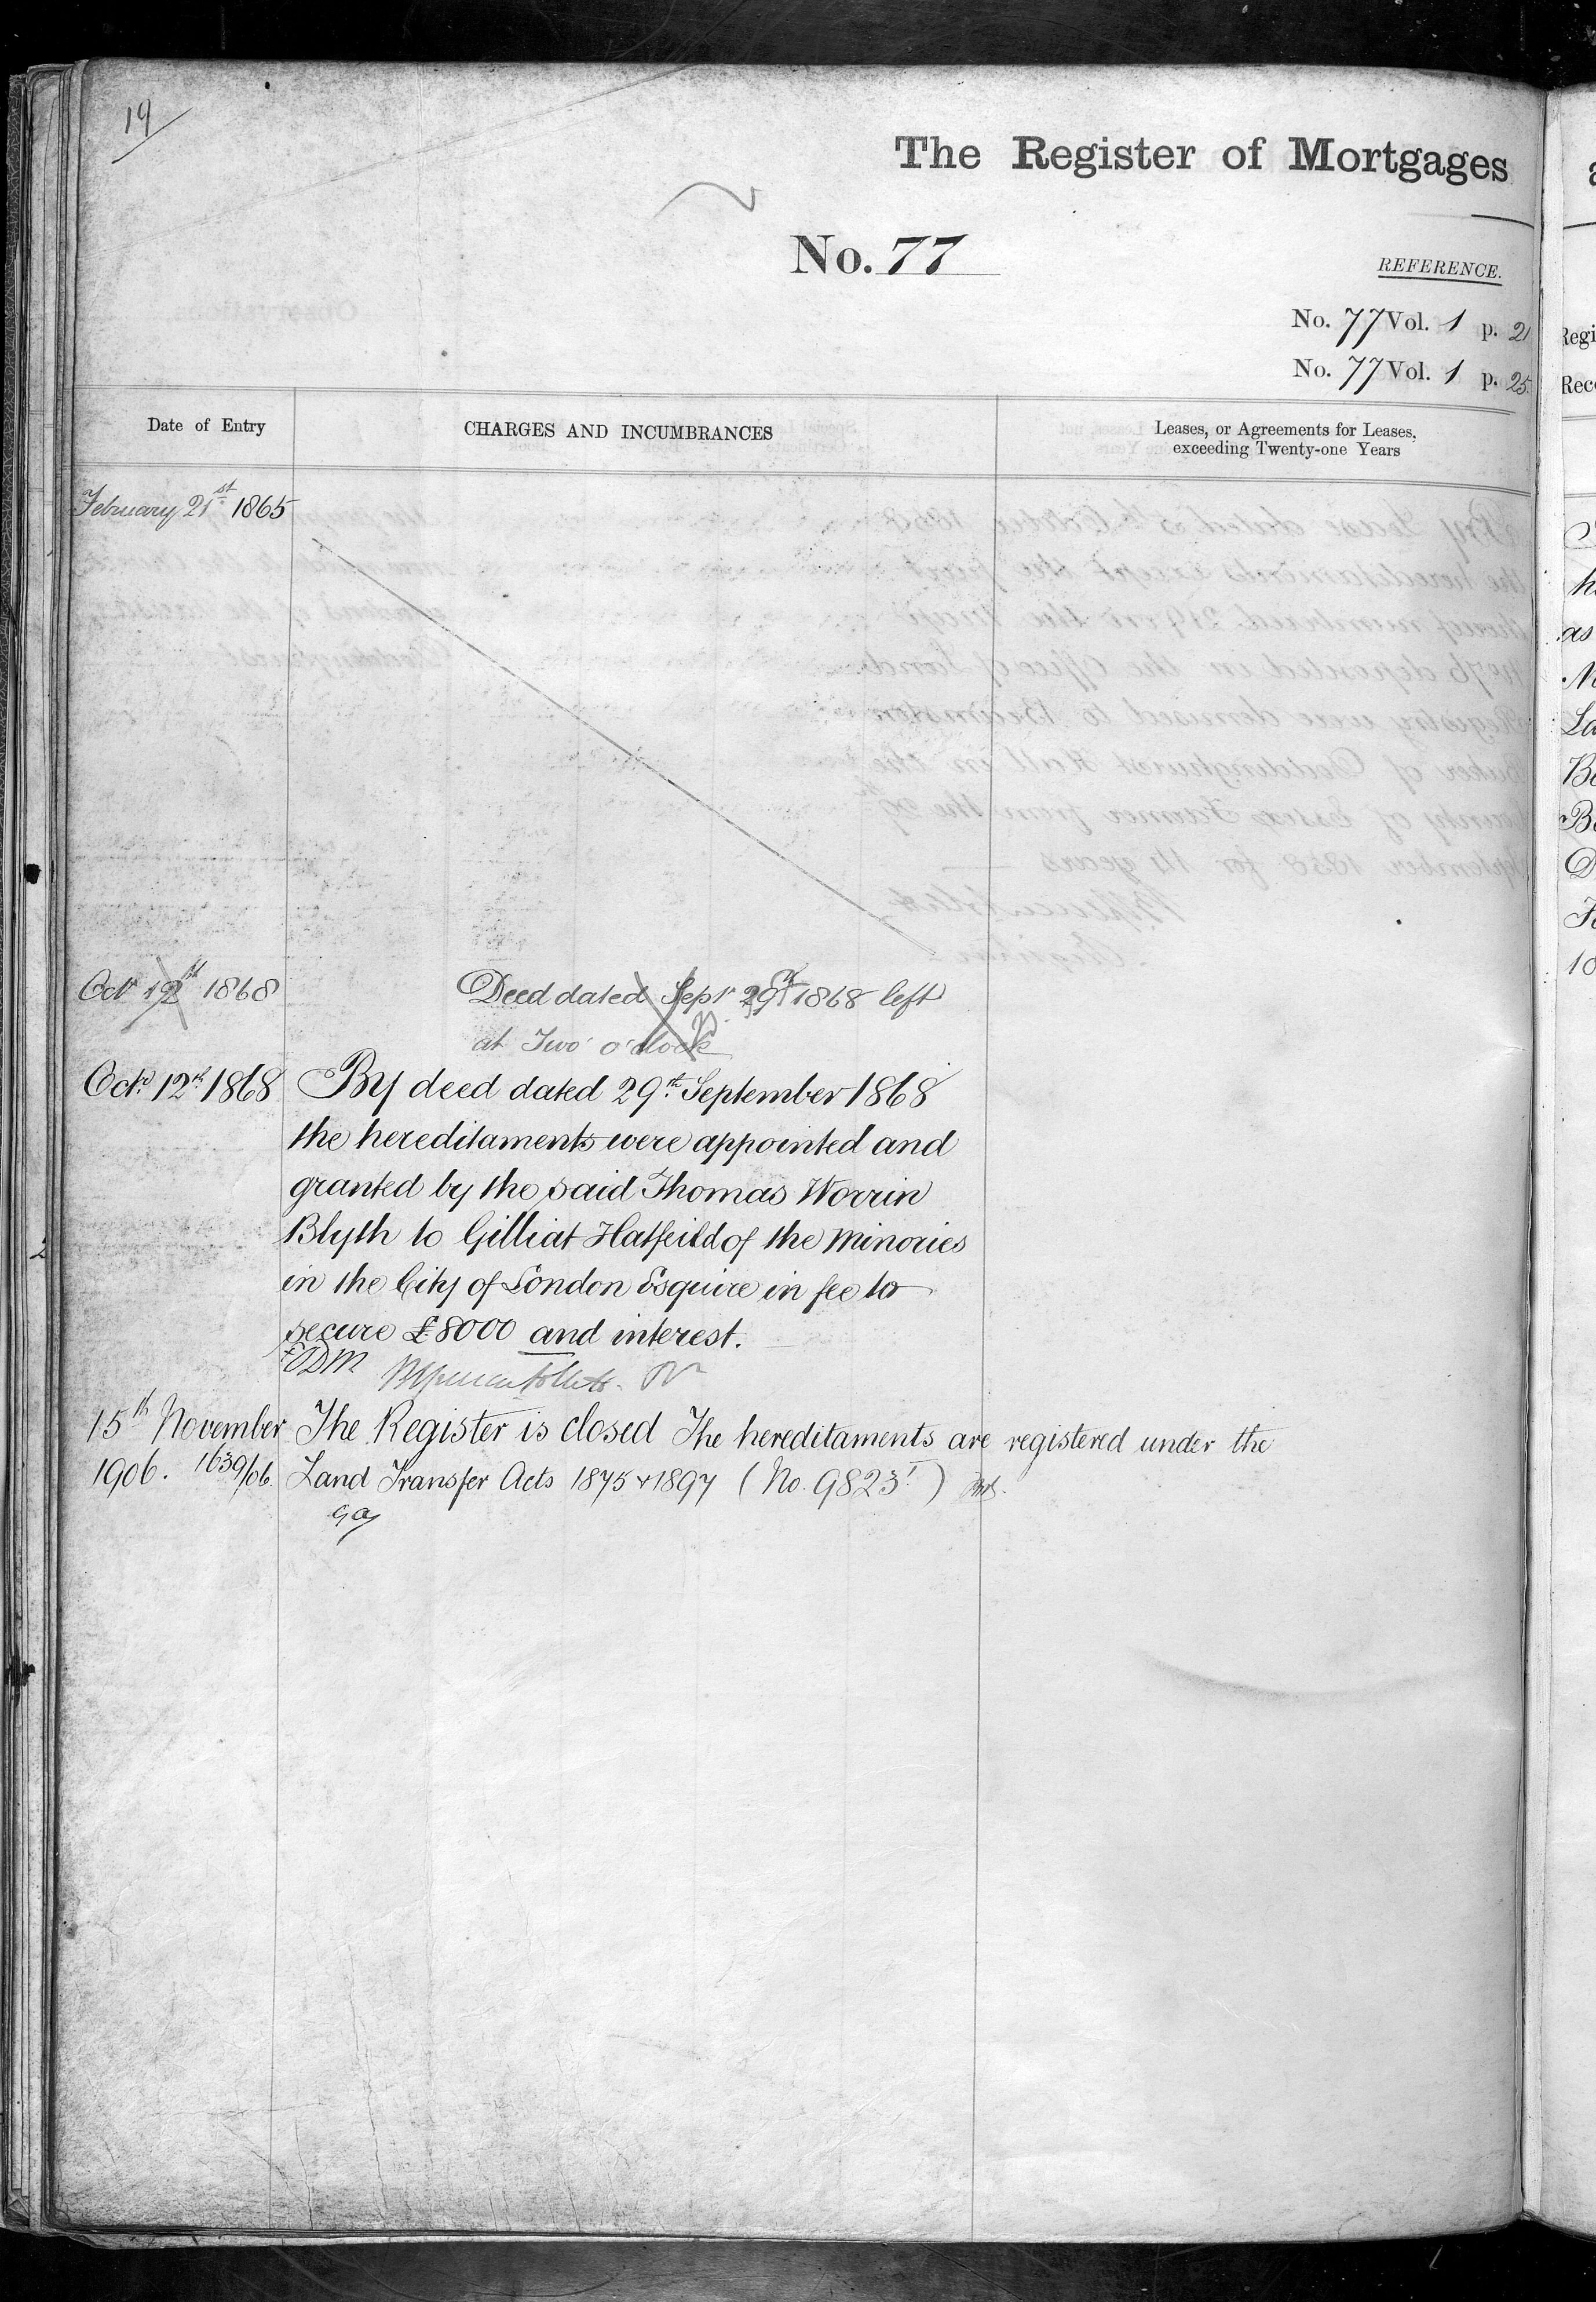 19
The Register of Mortgages
No. 77
REFERENCE.
No. 77 Vol. 1 p. 21
No. 77 Vol. 1 p. 25.
Date of Entry
CHARGES AND INCUMBRANCES
Leases, or Agreements for Leases,
exceeding Twenty-one Years
February 21st 1865
Octr 12th 1868 Deed dated Sepr 29th 1868 left
at Two o'clock
Octr 12th 1868 By deed dated 29th September 1868
the hereditaments were appointed and
granted by the said Thomas Worrin
Blyth to Gilliat Hatfeild of the Minories
in the City of London Esquire in fee to
secure £8000 and interest.
EDM
15th November The Register is closed The hereditaments are registered under the
1906. 1639/06. Land Transfer Acts 1875 & 1897 (No. 9823)